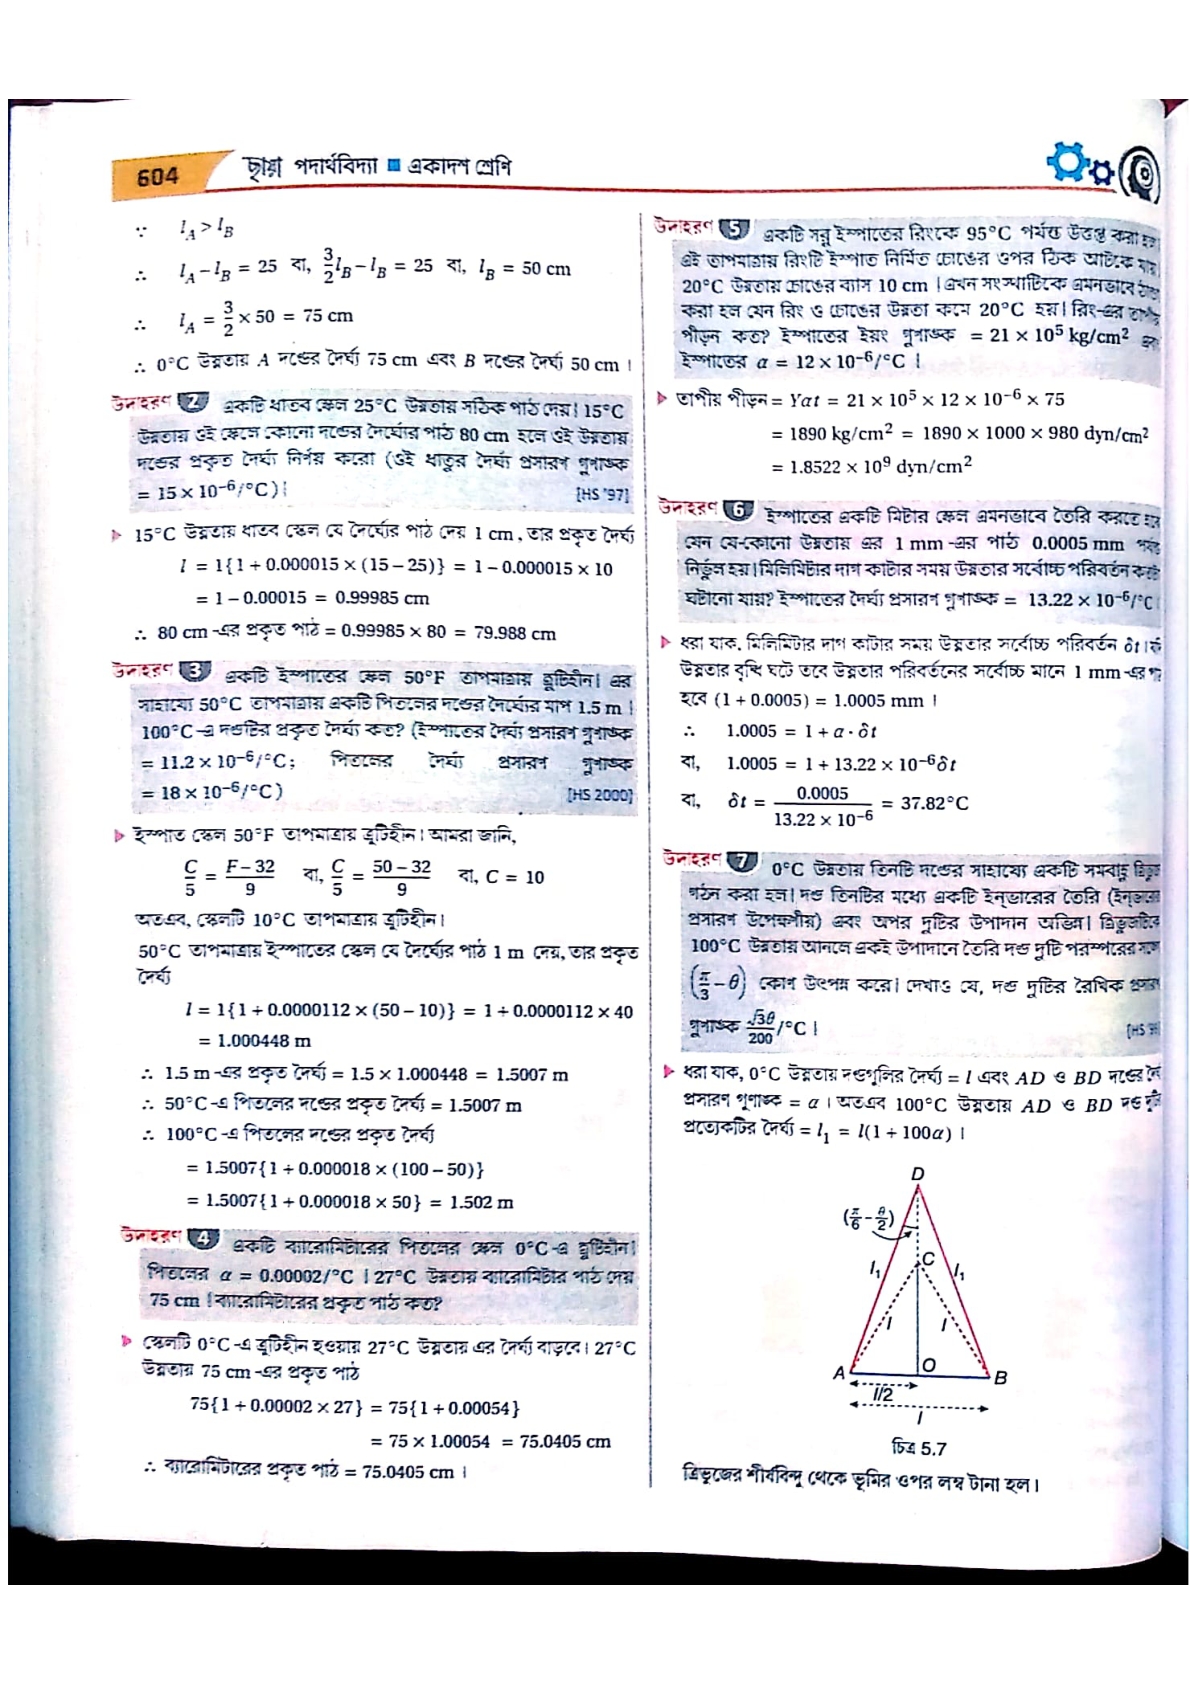 604 ছায়া পদার্থবিদ্যা ■ একাদশ শ্রেণি
∵ l_A > l_B
∴ l_A – l_B = 25 বা, 3/2 l_B – l_B = 25 বা, l_B = 50 cm
∴ l_A = 3/2 × 50 = 75 cm
∴ 0°C উষ্ণতায় A দণ্ডের দৈর্ঘ্য 75 cm এবং B দণ্ডের দৈর্ঘ্য 50 cm ।
উদাহরণ 2 একটি ধাতব স্কেল 25°C উষ্ণতায় সঠিক পাঠ দেয়। 15°C
উষ্ণতায় ওই স্কেলে কোনো দণ্ডের দৈর্ঘ্যের পাঠ 80 cm হলে ওই উষ্ণতায়
দণ্ডের প্রকৃত দৈর্ঘ্য নির্ণয় করো (ওই ধাতুর দৈর্ঘ্য প্রসারণ গুণাঙ্ক
= 15 × 10⁻⁶/°C)। [HS '97]
15°C উষ্ণতায় ধাতব স্কেল যে দৈর্ঘ্যের পাঠ দেয় 1 cm, তার প্রকৃত দৈর্ঘ্য
l = 1{1 + 0.000015 × (15 – 25)} = 1 – 0.000015 × 10
= 1 – 0.00015 = 0.99985 cm
∴ 80 cm -এর প্রকৃত পাঠ = 0.99985 × 80 = 79.988 cm
উদাহরণ 3 একটি ইস্পাতের স্কেল 50°F তাপমাত্রায় ত্রুটিহীন। এর
সাহায্যে 50°C তাপমাত্রায় একটি পিতলের দণ্ডের দৈর্ঘ্যের মাপ 1.5 m ।
100°C -এ দণ্ডটির প্রকৃত দৈর্ঘ্য কত? (ইস্পাতের দৈর্ঘ্য প্রসারণ গুণাঙ্ক
= 11.2 × 10⁻⁶/°C; পিতলের দৈর্ঘ্য প্রসারণ গুণাঙ্ক
= 18 × 10⁻⁶/°C) [HS 2000]
ইস্পাত স্কেল 50°F তাপমাত্রায় ত্রুটিহীন। আমরা জানি,
C/5 = (F – 32)/9 বা, C/5 = (50 – 32)/9 বা, C = 10
অতএব, স্কেলটি 10°C তাপমাত্রায় ত্রুটিহীন।
50°C তাপমাত্রায় ইস্পাতের স্কেল যে দৈর্ঘ্যের পাঠ 1 m দেয়, তার প্রকৃত
দৈর্ঘ্য
l = 1{1 + 0.0000112 × (50 – 10)} = 1 + 0.0000112 × 40
= 1.000448 m
∴ 1.5 m -এর প্রকৃত দৈর্ঘ্য = 1.5 × 1.000448 = 1.5007 m
∴ 50°C -এ পিতলের দণ্ডের প্রকৃত দৈর্ঘ্য = 1.5007 m
∴ 100°C -এ পিতলের দণ্ডের প্রকৃত দৈর্ঘ্য
= 1.5007{1 + 0.000018 × (100 – 50)}
= 1.5007{1 + 0.000018 × 50} = 1.502 m
উদাহরণ 4 একটি ব্যারোমিটারের পিতলের স্কেল 0°C -এ ত্রুটিহীন।
পিতলের α = 0.00002/°C । 27°C উষ্ণতায় ব্যারোমিটার পাঠ দেয়
75 cm । ব্যারোমিটারের প্রকৃত পাঠ কত?
স্কেলটি 0°C -এ ত্রুটিহীন হওয়ায় 27°C উষ্ণতায় এর দৈর্ঘ্য বাড়বে। 27°C
উষ্ণতায় 75 cm -এর প্রকৃত পাঠ
75{1 + 0.00002 × 27} = 75{1 + 0.00054}
= 75 × 1.00054 = 75.0405 cm
∴ ব্যারোমিটারের প্রকৃত পাঠ = 75.0405 cm ।
উদাহরণ 5 একটি সরু ইস্পাতের রিংকে 95°C পর্যন্ত উত্তপ্ত করা হল।
এই তাপমাত্রায় রিংটি ইস্পাত নির্মিত চোঙের ওপর ঠিক আটকে যায়।
20°C উষ্ণতায় চোঙের ব্যাস 10 cm । এখন সংস্থাটিকে এমনভাবে ঠান্ডা
করা হল যেন রিং ও চোঙের উষ্ণতা কমে 20°C হয়। রিং-এর তাপীয়
পীড়ন কত? ইস্পাতের ইয়ং গুণাঙ্ক = 21 × 10⁵ kg/cm²
ইস্পাতের α = 12 × 10⁻⁶/°C ।
তাপীয় পীড়ন = Yαt = 21 × 10⁵ × 12 × 10⁻⁶ × 75
= 1890 kg/cm² = 1890 × 1000 × 980 dyn/cm²
= 1.8522 × 10⁹ dyn/cm²
উদাহরণ 6 ইস্পাতের একটি মিটার স্কেল এমনভাবে তৈরি করতে হবে
যেন যে-কোনো উষ্ণতায় এর 1 mm -এর পাঠ 0.0005 mm পর্যন্ত
নির্ভুল হয়। মিলিমিটার দাগ কাটার সময় উষ্ণতার সর্বোচ্চ পরিবর্তন কতটা
ঘটানো যায়? ইস্পাতের দৈর্ঘ্য প্রসারণ গুণাঙ্ক = 13.22 × 10⁻⁶/°C ।
ধরা যাক, মিলিমিটার দাগ কাটার সময় উষ্ণতার সর্বোচ্চ পরিবর্তন δt ।
উষ্ণতার বৃদ্ধি ঘটে তবে উষ্ণতার পরিবর্তনের সর্বোচ্চ মানে 1 mm -এর
হবে (1 + 0.0005) = 1.0005 mm ।
∴ 1.0005 = 1 + α · δt
বা, 1.0005 = 1 + 13.22 × 10⁻⁶δt
বা, δt = 0.0005/(13.22 × 10⁻⁶) = 37.82°C
উদাহরণ 7 0°C উষ্ণতায় তিনটি দণ্ডের সাহায্যে একটি সমবাহু ত্রিভুজ
গঠন করা হল। দণ্ড তিনটির মধ্যে একটি ইন্‌ভারের তৈরি (ইন্‌ভারের
প্রসারণ উপেক্ষণীয়) এবং অপর দুটির উপাদান অভিন্ন। ত্রিভুজটিকে
100°C উষ্ণতায় আনলে একই উপাদানে তৈরি দণ্ড দুটি পরস্পরের সঙ্গে
(π/3 – θ) কোণ উৎপন্ন করে। দেখাও যে, দণ্ড দুটির রৈখিক প্রসারণ
গুণাঙ্ক √3θ/200 /°C ।
ধরা যাক, 0°C উষ্ণতায় দণ্ডগুলির দৈর্ঘ্য = l এবং AD ও BD দণ্ডের দৈর্ঘ্য
প্রসারণ গুণাঙ্ক = α । অতএব 100°C উষ্ণতায় AD ও BD দণ্ড দুটি
প্রত্যেকটির দৈর্ঘ্য = l₁ = l(1 + 100α) ।
D
(π/6 – θ/2)
C
l₁ l₁
l l
A O B
l/2
l
চিত্র 5.7
ত্রিভুজের শীর্ষবিন্দু থেকে ভূমির ওপর লম্ব টানা হল।